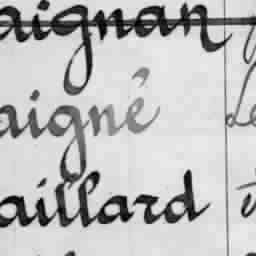 aignan
aigné Le
aillard